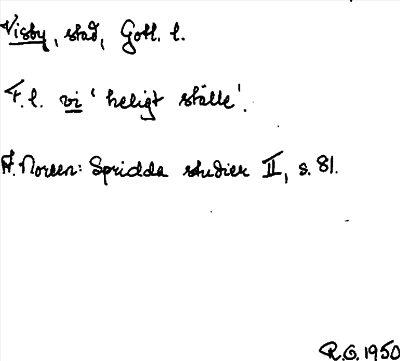 Visby, stad, Gotl. l.
F.l. vi 'heligt ställe'.
A. Noreen: Spridda studier II, s. 81.
R.O. 1950